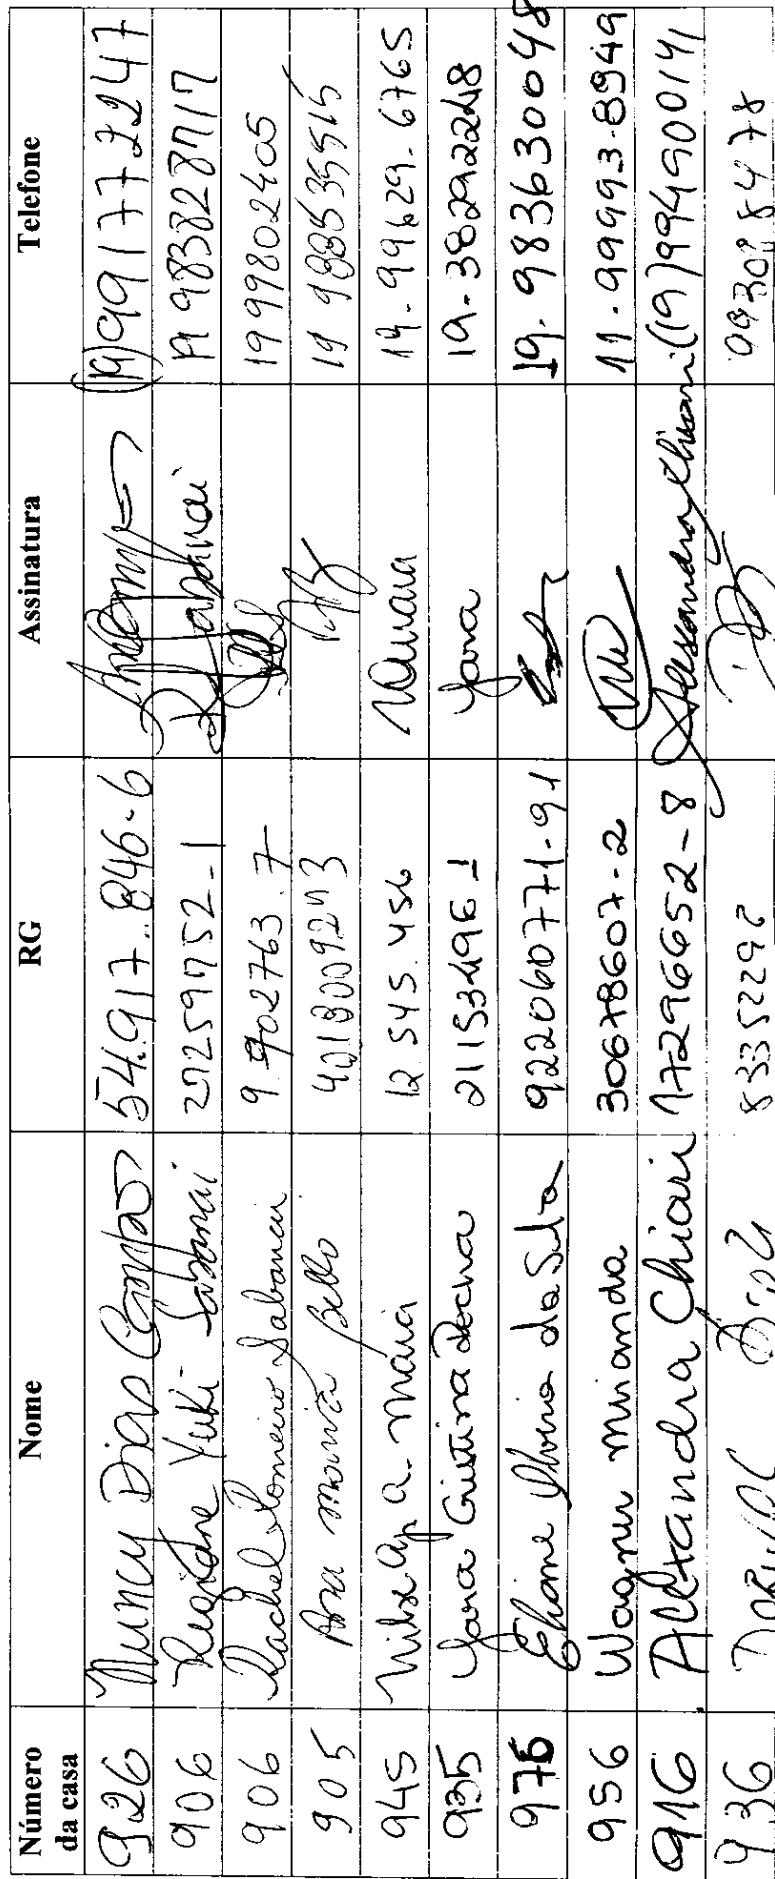 Número da casa | Nome | RG | Assinatura | Telefone
926 | Nuncy Dias Campos | 54.917.846-6 | | (19) 991772247
906 | Regiane Yuki Sabanai | 27259752-1 | | 19 983828717
906 | Rachel Romeiro Sabanai | 9.902763.7 | | 19 99802405
905 | Ana Maria Bello | 4018009243 | | 19 988535515
945 | a. Maria | 12.545.456 | | 19-99629-6765
935 | Yara Cristina Rocha | 21153496-1 | Yara | 19-38292248
976 | Eliane Silveira da Silva | 922060771-91 | | 19-983630048
956 | Wagner Miranda | 30678607-2 | | 11-99993-8949
916 | Alexandra Chiari | 17296652-8 | Alexandra Chiari | (19)994900141
936 | | 8335229 | |